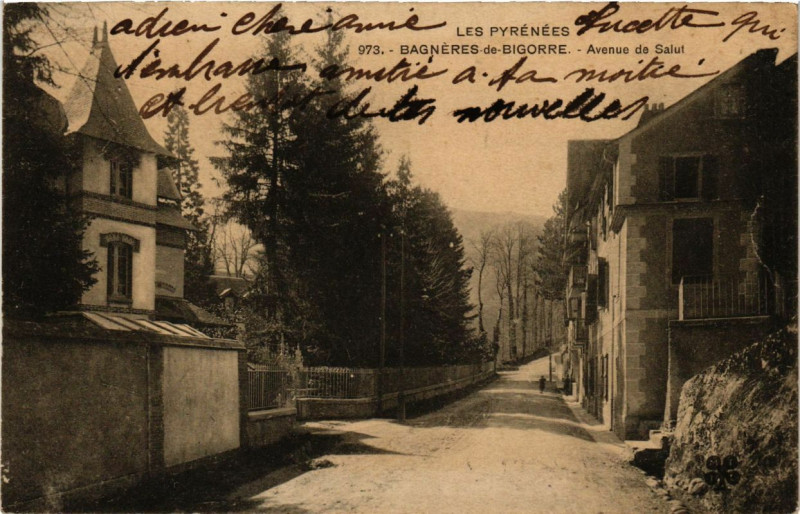 LES PYRÉNÉES
973. - BAGNÈRES-de-BIGORRE. - Avenue de Salut
adrien chere amie Lucette qui
t'embrasse amitié a. ta moitié
Et de tes nouvelles